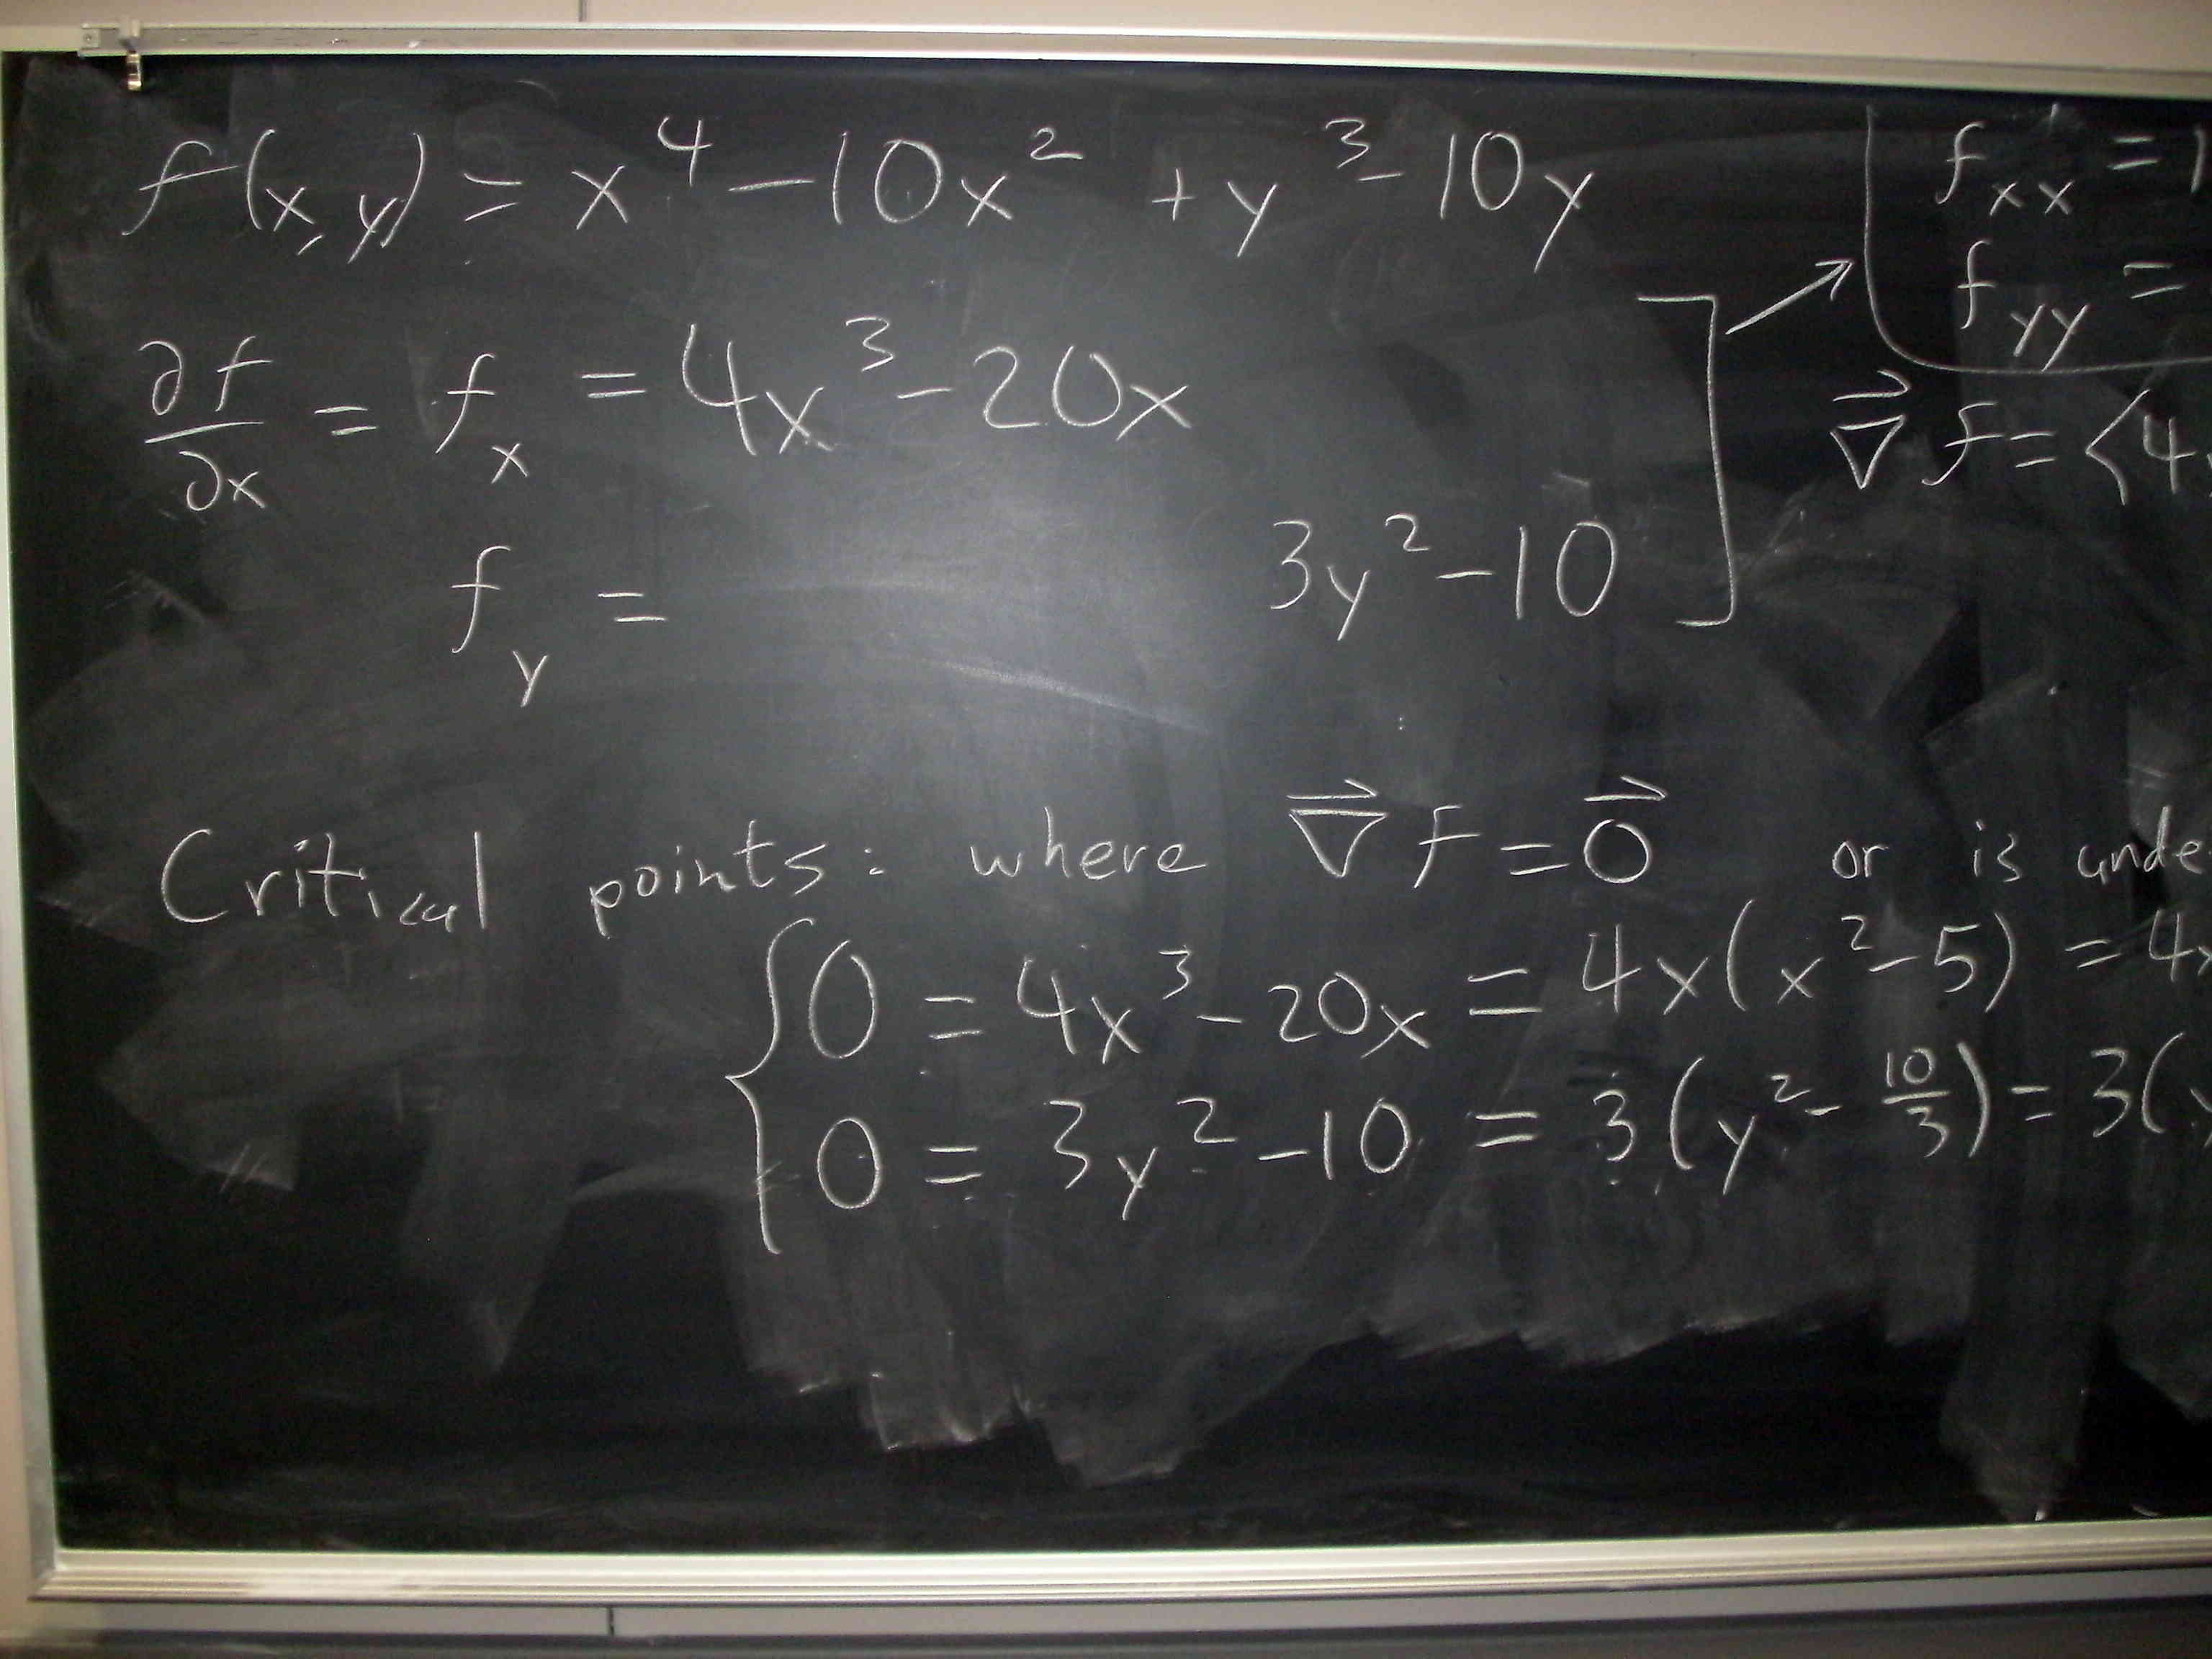 f(x,y) = x⁴ - 10x² + y³ - 10y
∂f/∂x = f_x = 4x³ - 20x
f_y = 3y² - 10
f_xx = 1
f_yy =
∇⃗f = <4
Critical points: where ∇⃗f = 0⃗ or is unde
0 = 4x³ - 20x = 4x(x² - 5) = 4x
0 = 3y² - 10 = 3(y² - 10/3) = 3(y